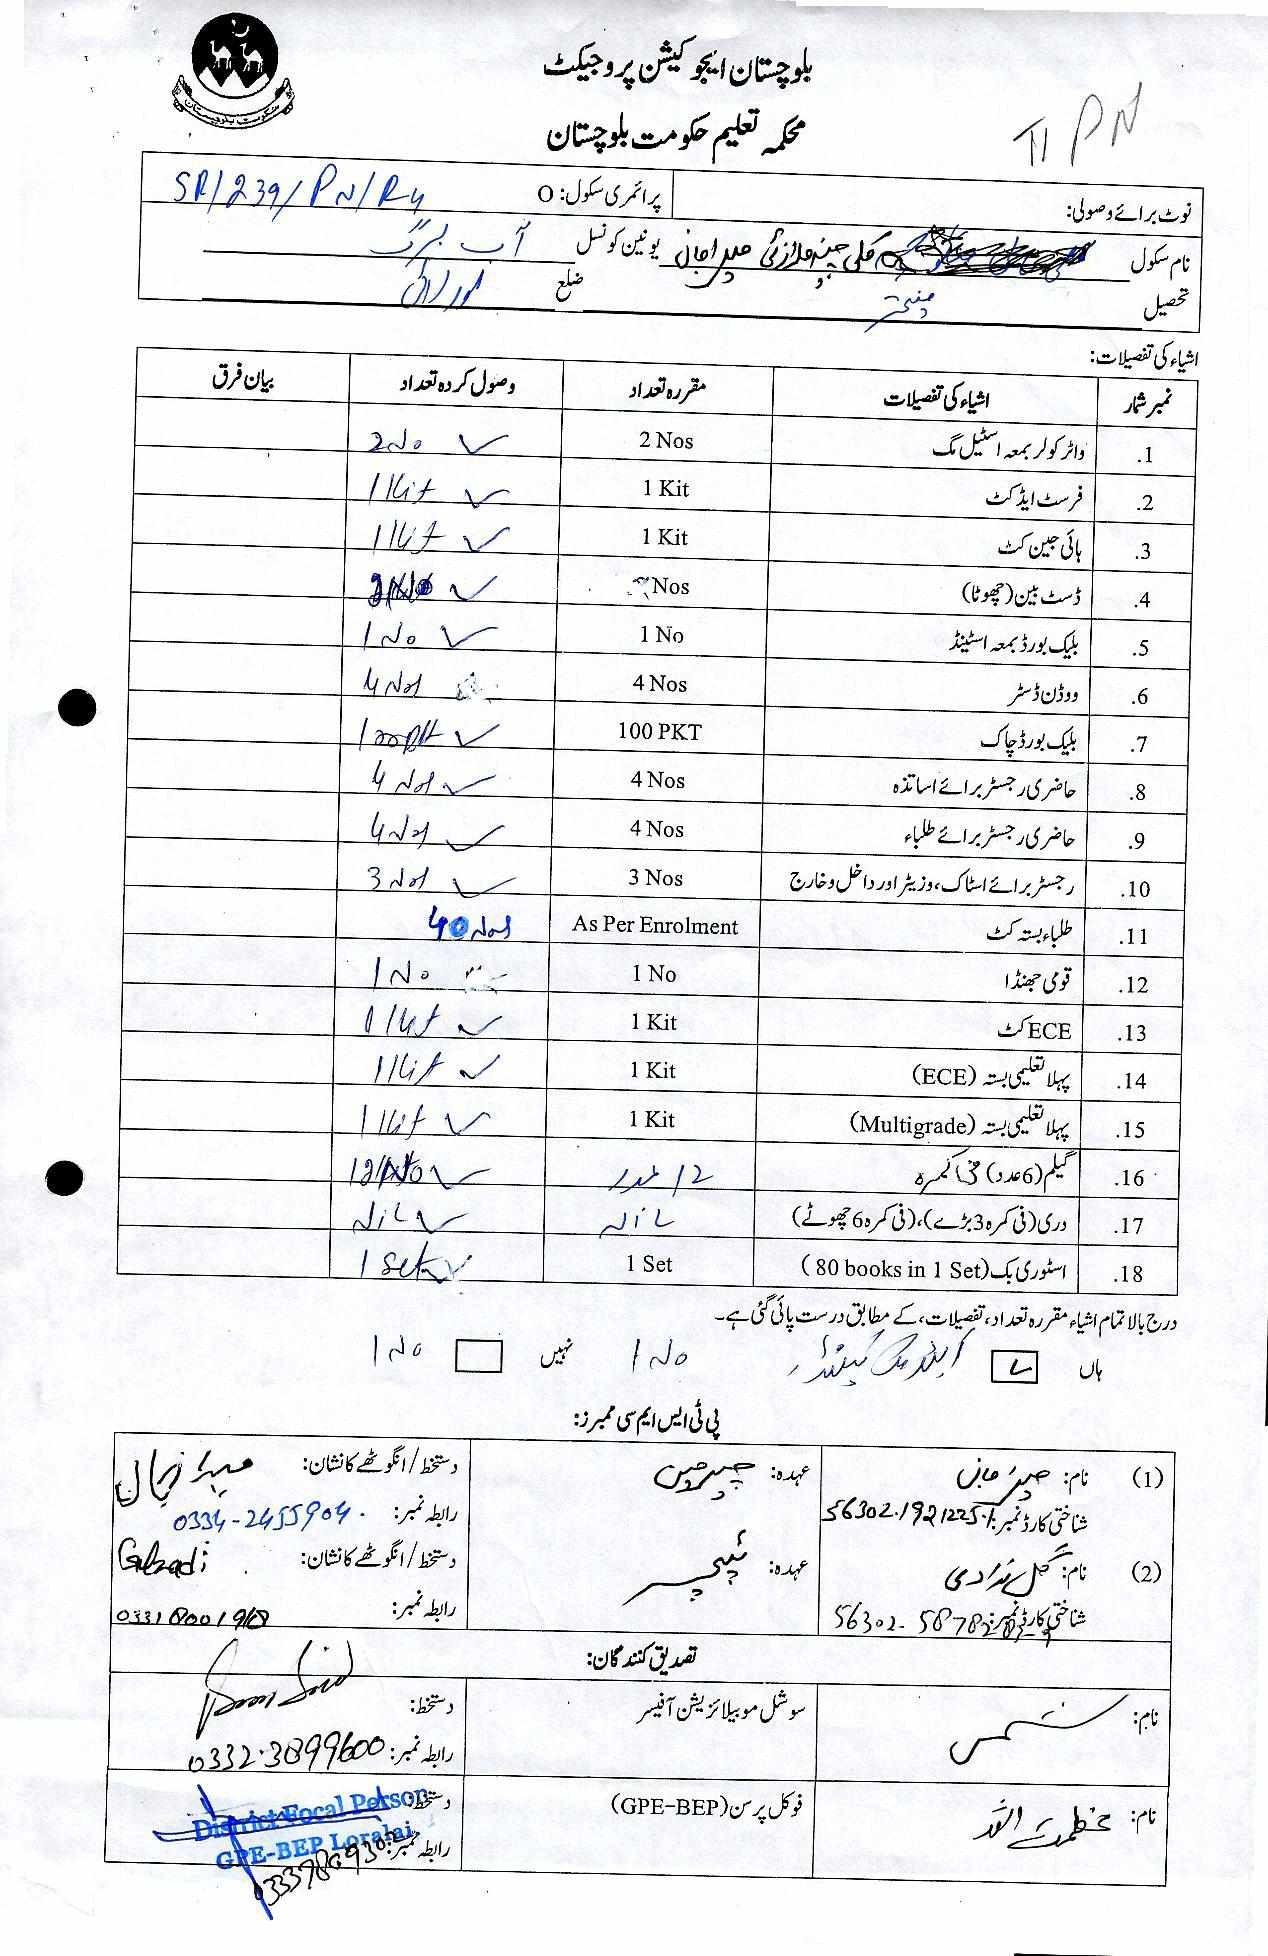 بلوچستان ایجوکیشن پروجیکٹ
محکمہ تعلیم حکومت بلوچستان
TI PN
حکومت بلوچستان
نوٹ برائے وصولی: پرائمری سکول: O SR/239/PN/R4
نام سکول کلی یونین کونسل آب
تحصیل ضلع لورالائی
اشیاء کی تفصیلات:
نمبر شمار اشیاء کی تفصیلات مقررہ تعداد وصول کردہ تعداد بیان فرق
1. واٹر کولر بمعہ اسٹیل مگ 2 Nos 2 No ✓
2. فرسٹ ایڈ کٹ 1 Kit 1 Kit ✓
3. ہائی جین کٹ 1 Kit 1 Kit ✓
4. ڈسٹ بین (چھوٹا) Nos ✓
5. بلیک بورڈ بمعہ اسٹینڈ 1 No 1 No ✓
6. ووڈن ڈسٹر 4 Nos 4 Nos
7. بلیک بورڈ چاک 100 PKT 100 Pkt ✓
8. حاضری رجسٹر برائے اساتذہ 4 Nos 4 Nos ✓
9. حاضری رجسٹر برائے طلباء 4 Nos 4 Nos ✓
10. رجسٹر برائے اسٹاک، وزیٹر اور داخل و خارج 3 Nos 3 Nos ✓
11. طلباء بستہ کٹ As Per Enrolment 40 Nos
12. قومی جھنڈا 1 No 1 No
13. ECE کٹ 1 Kit 1 Kit ✓
14. پہلا تعلیمی بستہ (ECE) 1 Kit 1 Kit ✓
15. پہلا تعلیمی بستہ (Multigrade) 1 Kit 1 Kit ✓
16. گیلم (6 عدد) فی کمرہ 12 عدد 12 No ✓
17. دری (فی کمرہ 3 بڑے)، (فی کمرہ 6 چھوٹے) Nil Nil ✓
18. اسٹوری بک (80 books in 1 Set) 1 Set 1 Set ✓
درج بالا تمام اشیاء مقررہ تعداد، تفصیلات، کے مطابق درست پائی گئی ہے۔
ہاں ✓ 1 No نہیں 1 No
پی ٹی ایس ایم سی ممبرز:
(1) نام: عہدہ: چیرمین دستخط/انگوٹھے کا نشان:
شناختی کارڈ نمبر: رابطہ نمبر: 0334-2455904
(2) نام: گل عہدہ: ٹیچر دستخط/انگوٹھے کا نشان:
شناختی کارڈ نمبر: رابطہ نمبر:
تصدیق کنندگان:
نام: شمس سوشل موبیلائزیشن آفیسر دستخط:
رابطہ نمبر: 0332-3899600
نام: عظمت اللہ فوکل پرسن (GPE-BEP) دستخط:
رابطہ نمبر:
District Focal Person
GPE-BEP Loralai